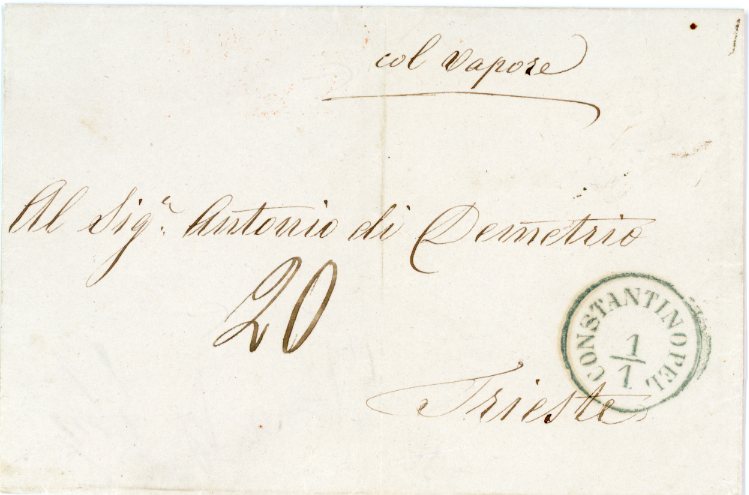 col vapore
Al Sigr. Antonio di Demetrio
20
CONSTANTINOPEL
1/1
Trieste